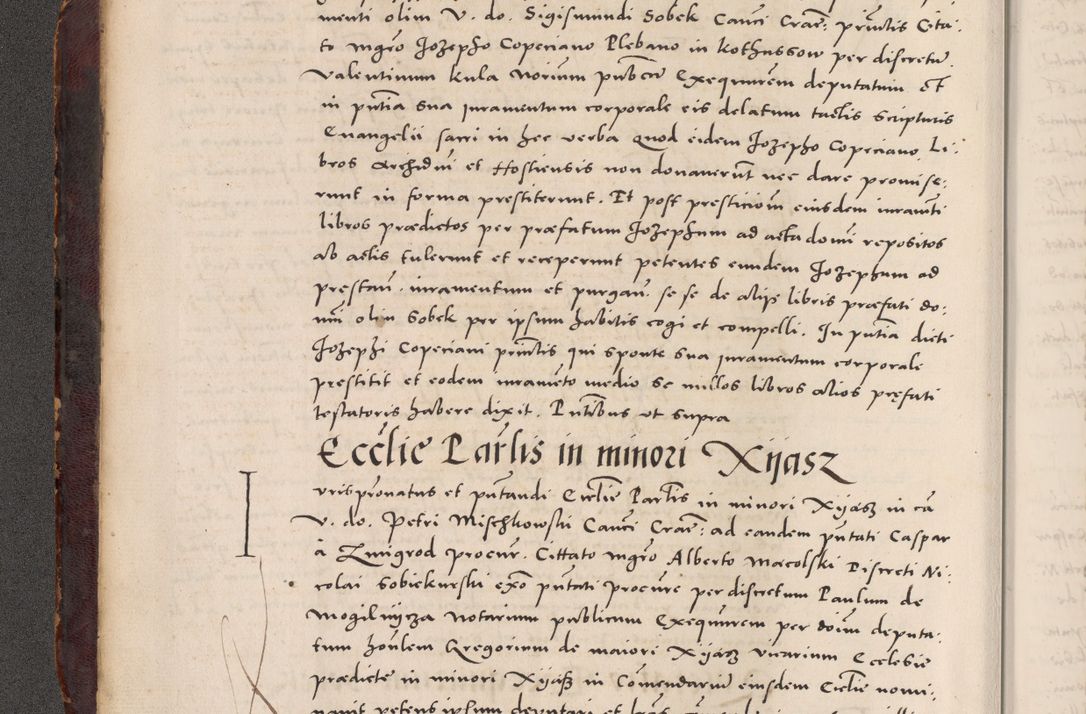 menti olim V. do. Sigismundi Sobek Canci Crac: princtis Cita:
to mgro Jozepho Copeciano Plebano in Kothussow per discretu.
Valentinum Kula Norium publicu Exequutrem deputatum et
in putia sua juramentum corporale eis delatum tactis Scripturis
Euangelii sacri in hec verba Quod eidem Jozepho Copeciano, Li:
bros Archidni et Hostiensis non donauerut nec dare promise:
runt in forma prestiterunt. Et post presticiom eiusdem iuramti
libros prædictos per præfatum Jozephum ad acta domi repositos
ab actis tulerunt et receperunt petentes eundem Jozephum ad
prestan. iuramentum et purgan. se se de aliis libris præfati do:
mi olim Sobek per ipsum habitis cogi et compelli. In putia dicti
Jozephi Copeciani princtis qui sponte sua juramentum corporale
prestitit et eodem iuramēto medio se nullos libros alios pręfati
testatoris habere dixit. Putibus ut supra
Ecclie Parlis in minori Xijasz
Iurispronatus et putandi Ecclie Parlis in minori Xijasz in ca
V. do. Petri Mischkowski Canci Crac: ad eandem putati Caspar
à Zmigrod procur. Cittato mgro Alberto Macolski Discreti Ni:
colai Sobiekurski exo putati procure per discretum Paulum de
Mogilnycza Notarium publicum Exequutrem per dom deputa:
tum honlem Gregorium de maiori Xijasz vicarium Ecclesie
prædicte in minori Xijasz in Comendariu eiusdem Ecclie nomi:
nauit petens ipsum deputari et